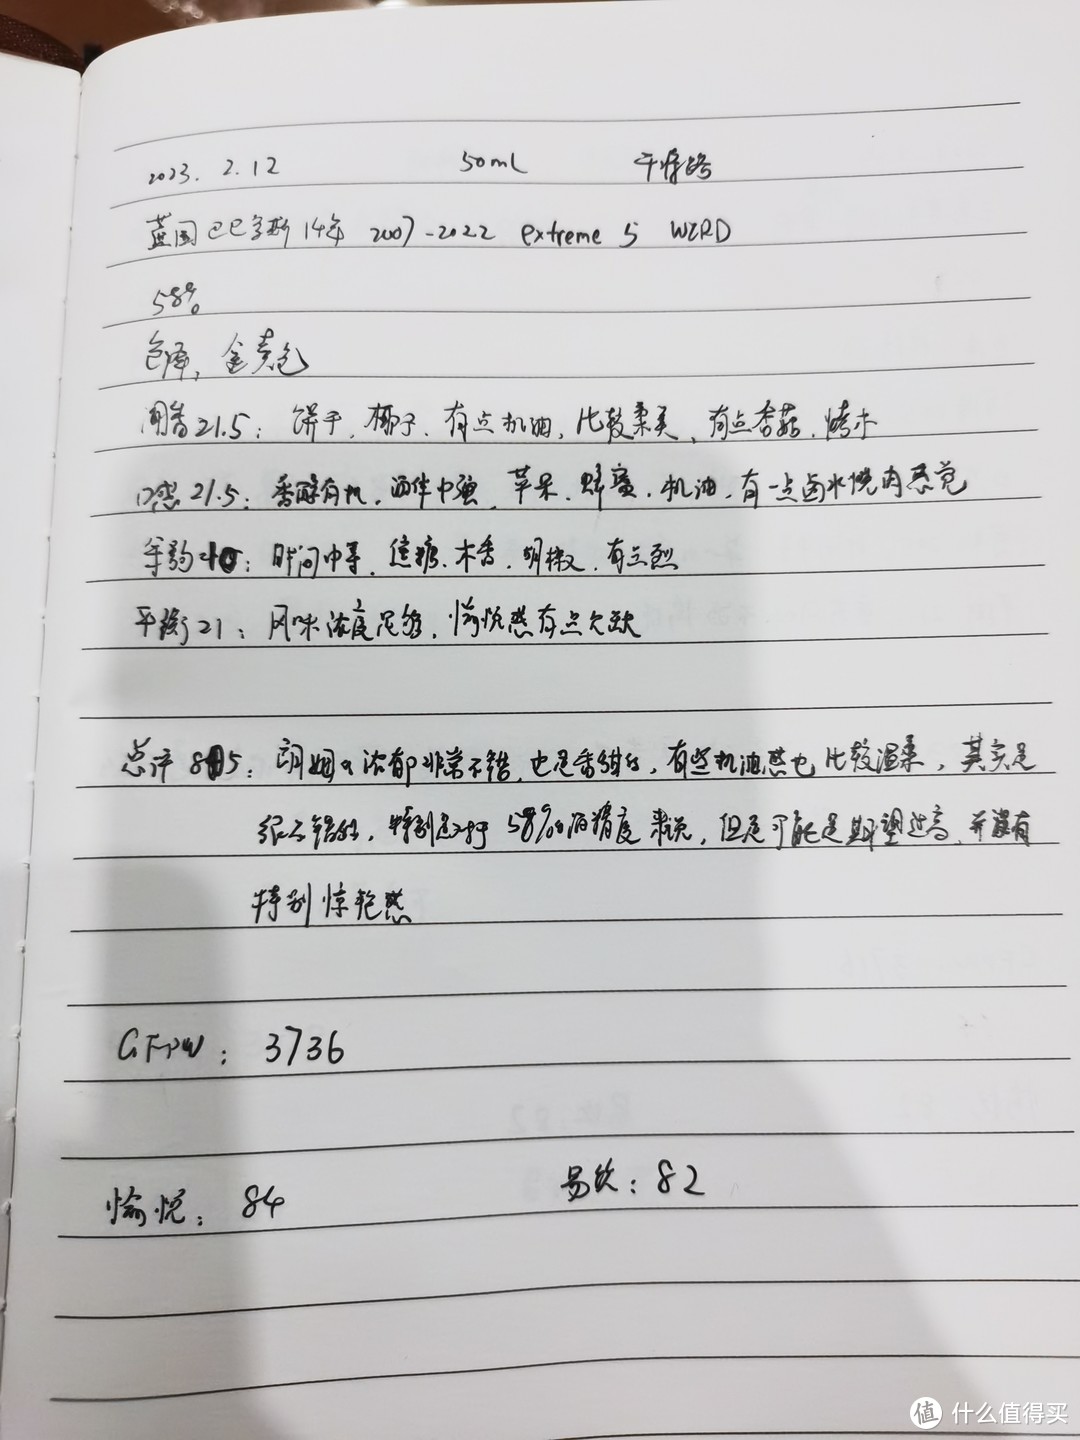 2023. 2.12 50mL 干将路
蓝图巴巴多斯14年 2007-2022 extreme 5 WIRD
58%
色泽: 金黄色
闻香21.5: 饼干, 椰子, 有点机油, 比较柔美, 有点香菇, 烤木
口感21.5: 香醇有机, 酒体中强, 苹果, 蜂蜜, 机油, 有一点卤水烧肉感觉
余韵: 时间中等, 焦糖, 木香, 胡椒, 有点烈
平衡21: 风味浓度足够, 愉悦感有点欠缺
总评 85: 朗姆的浓郁非常不错, 也是香甜的, 有些机油感也比较温柔, 其实是
很不错的, 特别是对于58%的酒精度来说, 但是可能是期望过高, 并没有
特别惊艳感
GFPW: 3736
愉悦: 84 易饮: 82
值 什么值得买